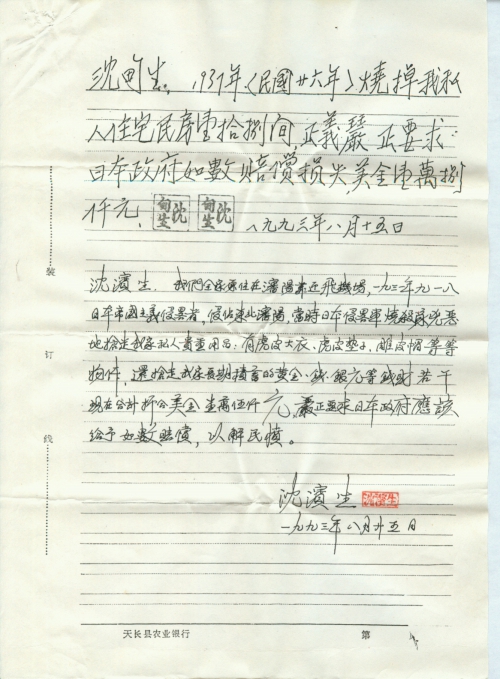 沈甸生, 1937年〈民國廿六年〉燒掉我私
人住宅民房壹拾捌间,正義嚴正要求
日本政府如數賠償損失,美金壹萬捌
仟元, 沈甸生 沈甸生 一九九三年八月十五日
沈濱生. 我們全家原住在瀋陽靠近飛機場,一九三一年九一八
日本帝國主義侵畧者,侵佔東北瀋陽,當時日本侵畧軍燒殺
地搶走我家私人貴重用品:有虎皮大衣、虎皮墊子、雕皮帽等等
物件,還搶走我家長期積蓄的黄金、錢、銀元等錢財若干
現在合計折合美金壹萬伍仟元,嚴正要求日本政府應該
给予如數賠償,以解民憤。
沈濱生
一九九三年八月廿五日
装
订
线
天长县农业银行 第